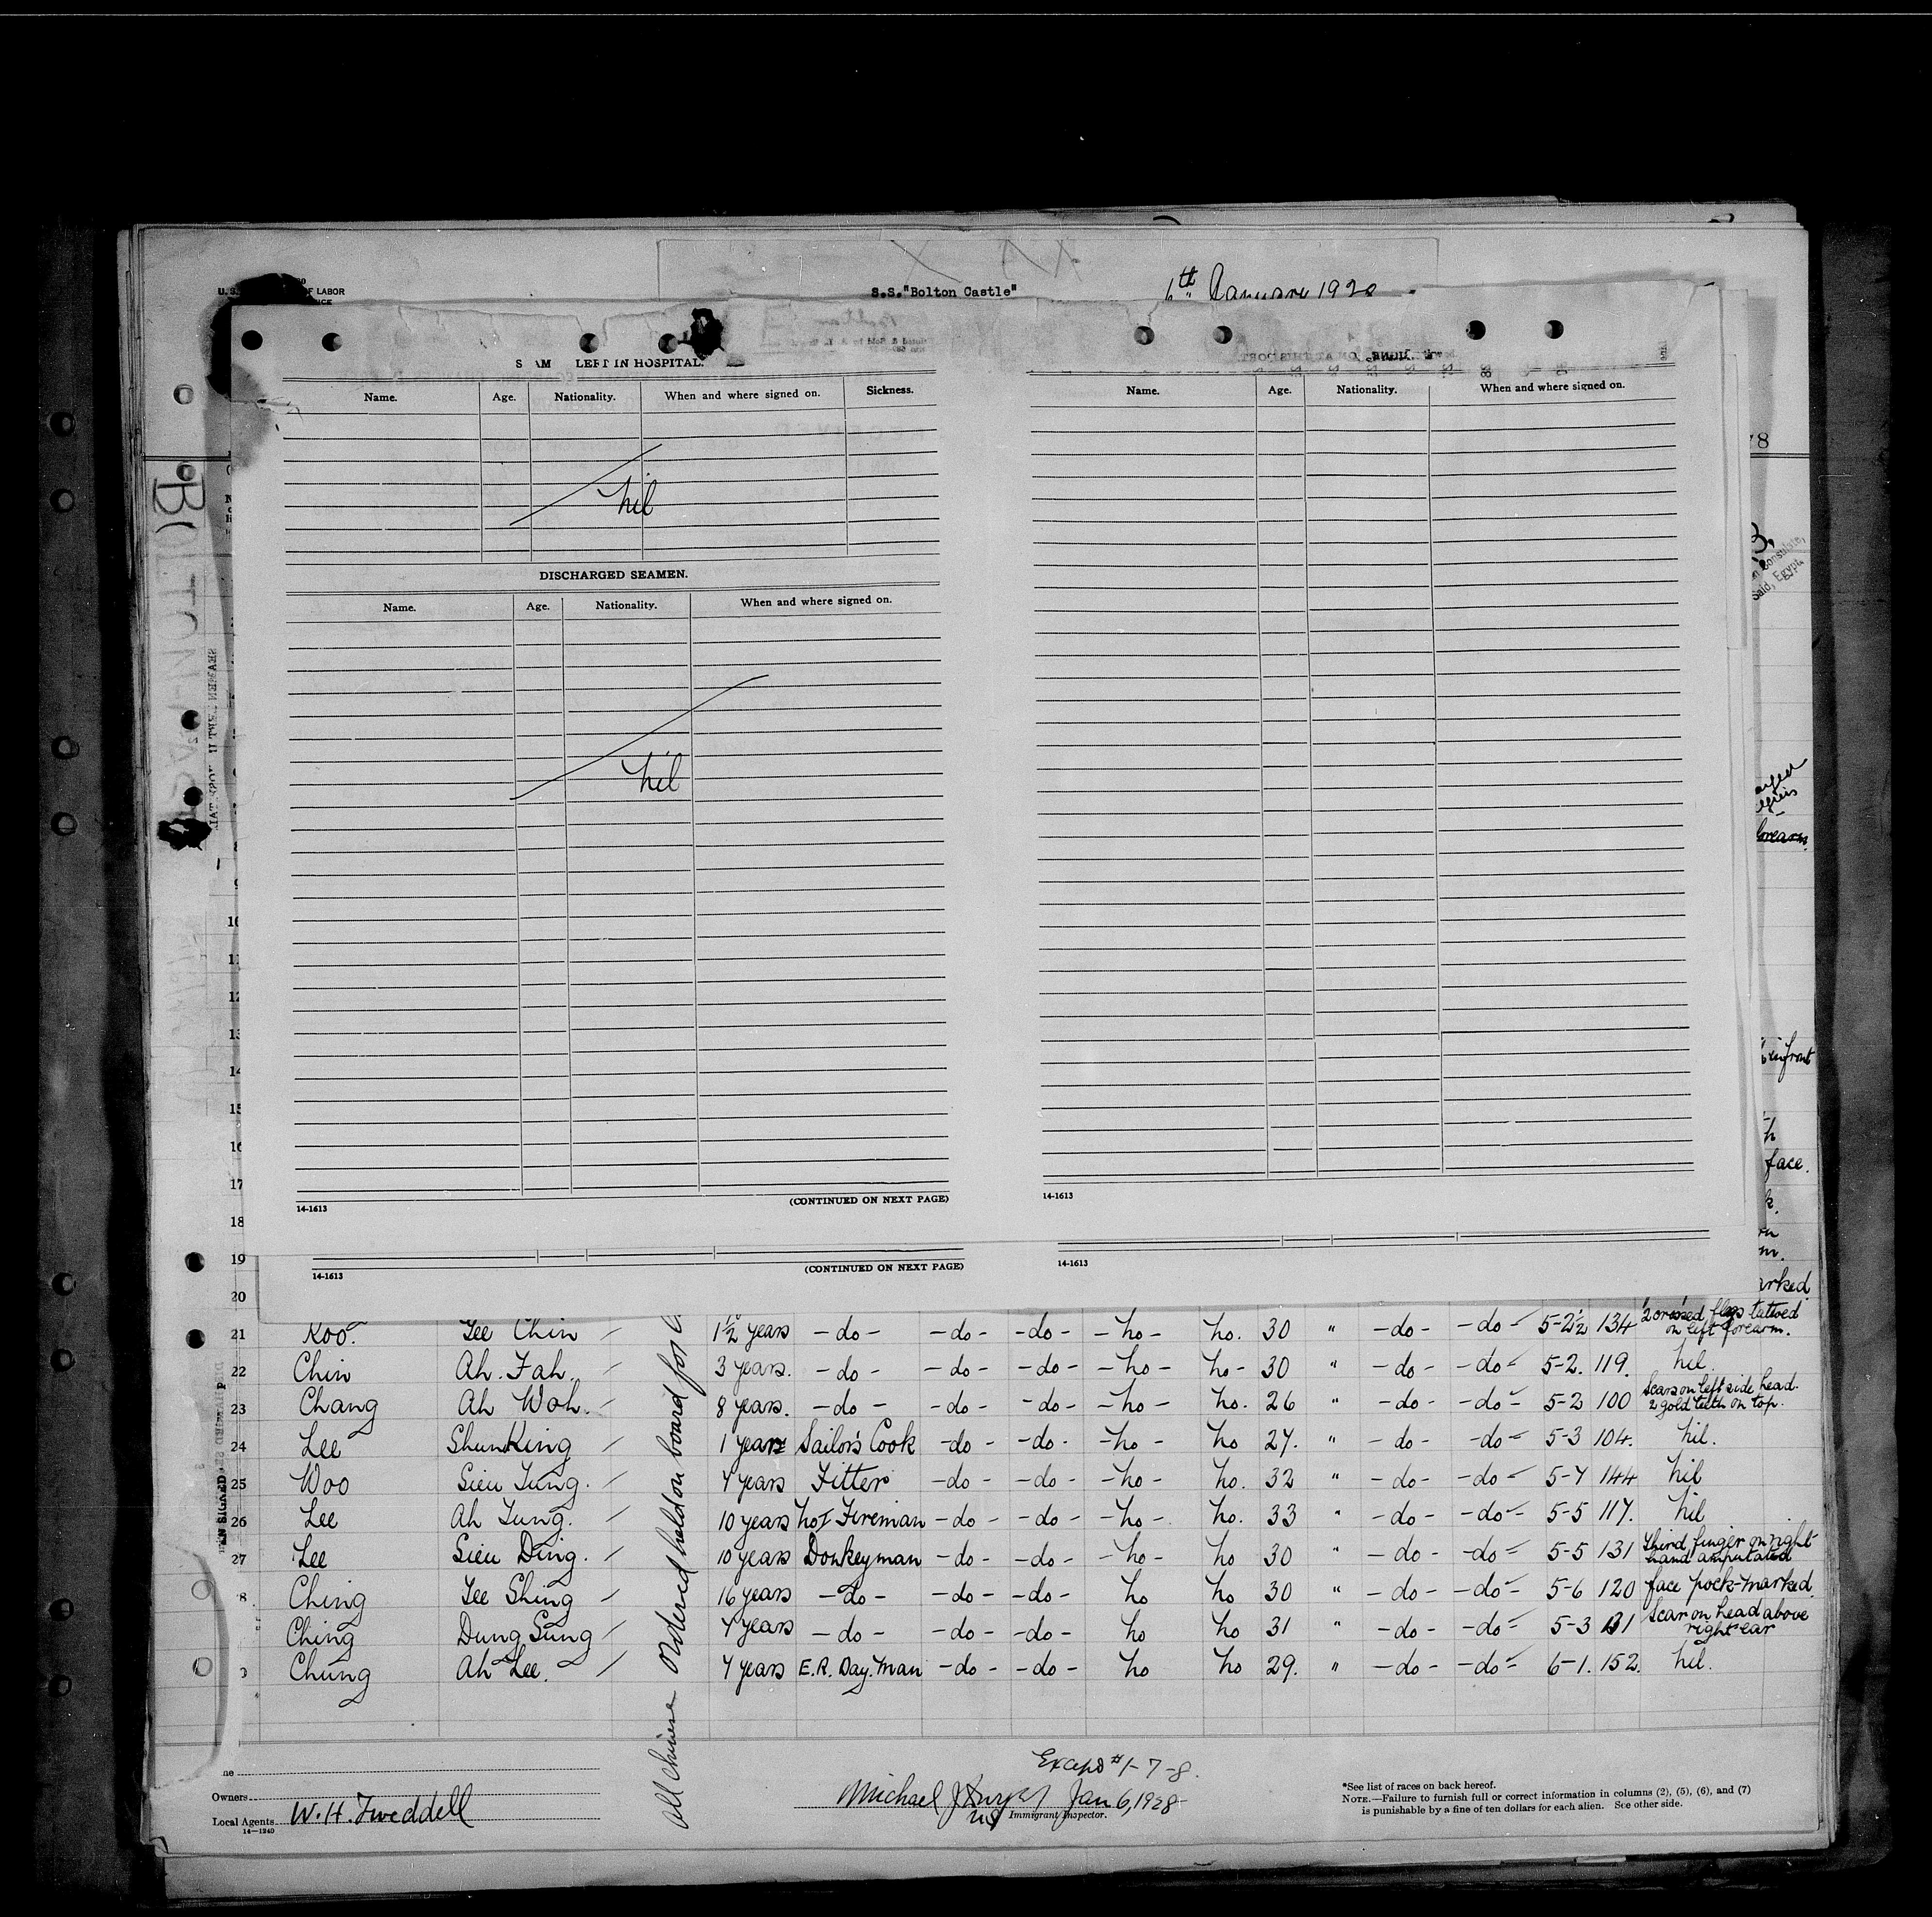 OF LABOR
S.S."Bolton Castle"
6th January 1928
LEFT IN HOSPITAL.
Name. Age. Nationality. When and where signed on. Sickness.
Nil
DISCHARGED SEAMEN.
Name. Age. Nationality. When and where signed on.
Nil
14-1613 (CONTINUED ON NEXT PAGE)
Name. Age. Nationality. When and where signed on.
14-1613
14-1613 (CONTINUED ON NEXT PAGE)
14-1613
10
11
12
13
14
15
16
17
18
19
20
21 Koo. Yee Chin 1½ years -do- -do- -do- -No- No. 30 " -do- -do- 5-2½ 134 2 crossed flags tattooed on left forearm.
22 Chin Ah. Fah. 3 years. -do- -do- -do- -No- No- 30 " -do- -do- 5-2. 119. Nil.
23 Chang Ah Woh. 8 years. -do- -do- -do- -No- No. 26 " -do- -do- 5-2 100 Scars on left side head. 2 gold teeth on top.
24 Lee Shun King 1 years Sailor's Cook -do- -do- -No- No 27. " -do- -do- 5-3 104. Nil.
25 Woo Sieu Tung. 4 years Fitter -do- -do- -No- No. 32 " -do- -do- 5-7 144 Nil
26 Lee Ah Tung. 10 years No1 Fireman -do- -do- -No- No. 33 " -do- -do- 5-5 117. Nil
27 Lee Sieu Ding. 10 years Donkeyman -do- -do- -No- No 30 " -do- -do- 5-5 131 Third finger on right hand amputated
8 Ching Yee Shing 16 years -do- -do- -do- No No 30 " -do- -do- 5-6 120 face pock-marked
Ching Dung Sung 4 years -do- -do- -do- No No 31 " -do- -do- 5-3 131 Scar on head above right ear
Chung Ah Lee. 7 years E.R. Day. Man -do- -do- No No 29. " -do- -do- 6-1. 152. Nil.
All Chinese ordered held on board for
Except #1-7-8.
Owners
Local Agents W. H. Tweddell
14-1240
Michael J Jan 6, 1928
Immigrant Inspector.
*See list of races on back hereof.
NOTE.—Failure to furnish full or correct information in columns (2), (5), (6), and (7)
is punishable by a fine of ten dollars for each alien. See other side.